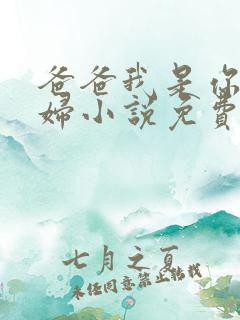 爸爸我是你
婦小说免費
七月之夏
未经同意禁止转载